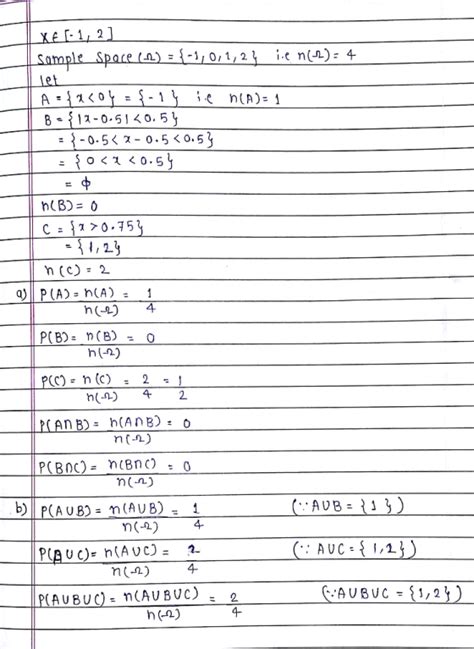 x∈[-1, 2]
Sample Space (Ω) = {-1, 0, 1, 2} i.e n(Ω) = 4
let
A = {x<0} = {-1} i.e n(A) = 1
B = {|x-0.5|<0.5}
= {-0.5<x-0.5<0.5}
= {0<x<0.5}
= ϕ
n(B) = 0
C = {x>0.75}
= {1,2}
n(C) = 2
a) P(A) = n(A)/n(Ω) = 1/4
P(B) = n(B)/n(Ω) = 0
P(C) = n(C)/n(Ω) = 2/4 = 1/2
P(A∩B) = n(A∩B)/n(Ω) = 0
P(B∩C) = n(B∩C)/n(Ω) = 0
b) P(A∪B) = n(A∪B)/n(Ω) = 1/4 (∵ A∪B = {1})
P(A∪C) = n(A∪C)/n(Ω) = 2/4 (∵ A∪C = {1,2})
P(A∪B∪C) = n(A∪B∪C)/n(Ω) = 2/4 (∵ A∪B∪C = {1,2})